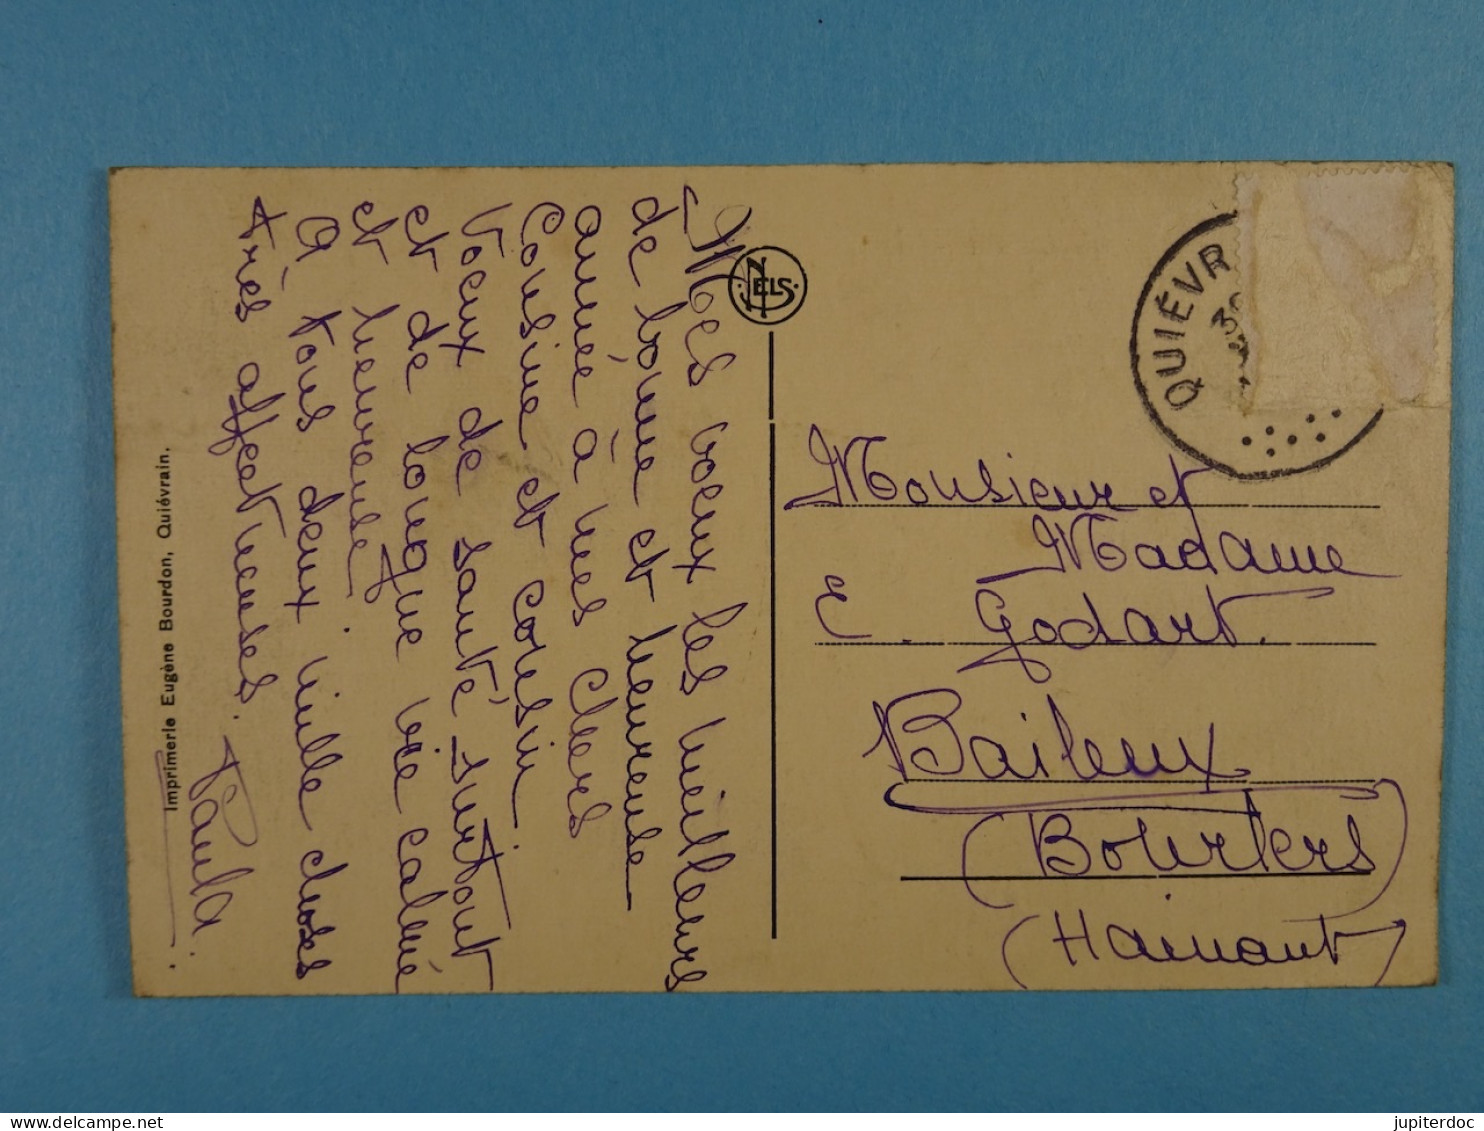 Mes voeux les meilleurs
de bonne et heureuse
année à mes Chers
Cousine et Cousin
Voeux de santé surtout
et de longue vie calme
et heureuse
A vous deux mille choses
très affectueuses.
Paula.
Imprimerie Eugène Bourdon, Quiévrain.
NELS
QUIÉVR
Monsieur et
Madame
E. Godart.
Baileux
(Bourlers)
(Hainaut)
delcampe.net
jupiterdoc